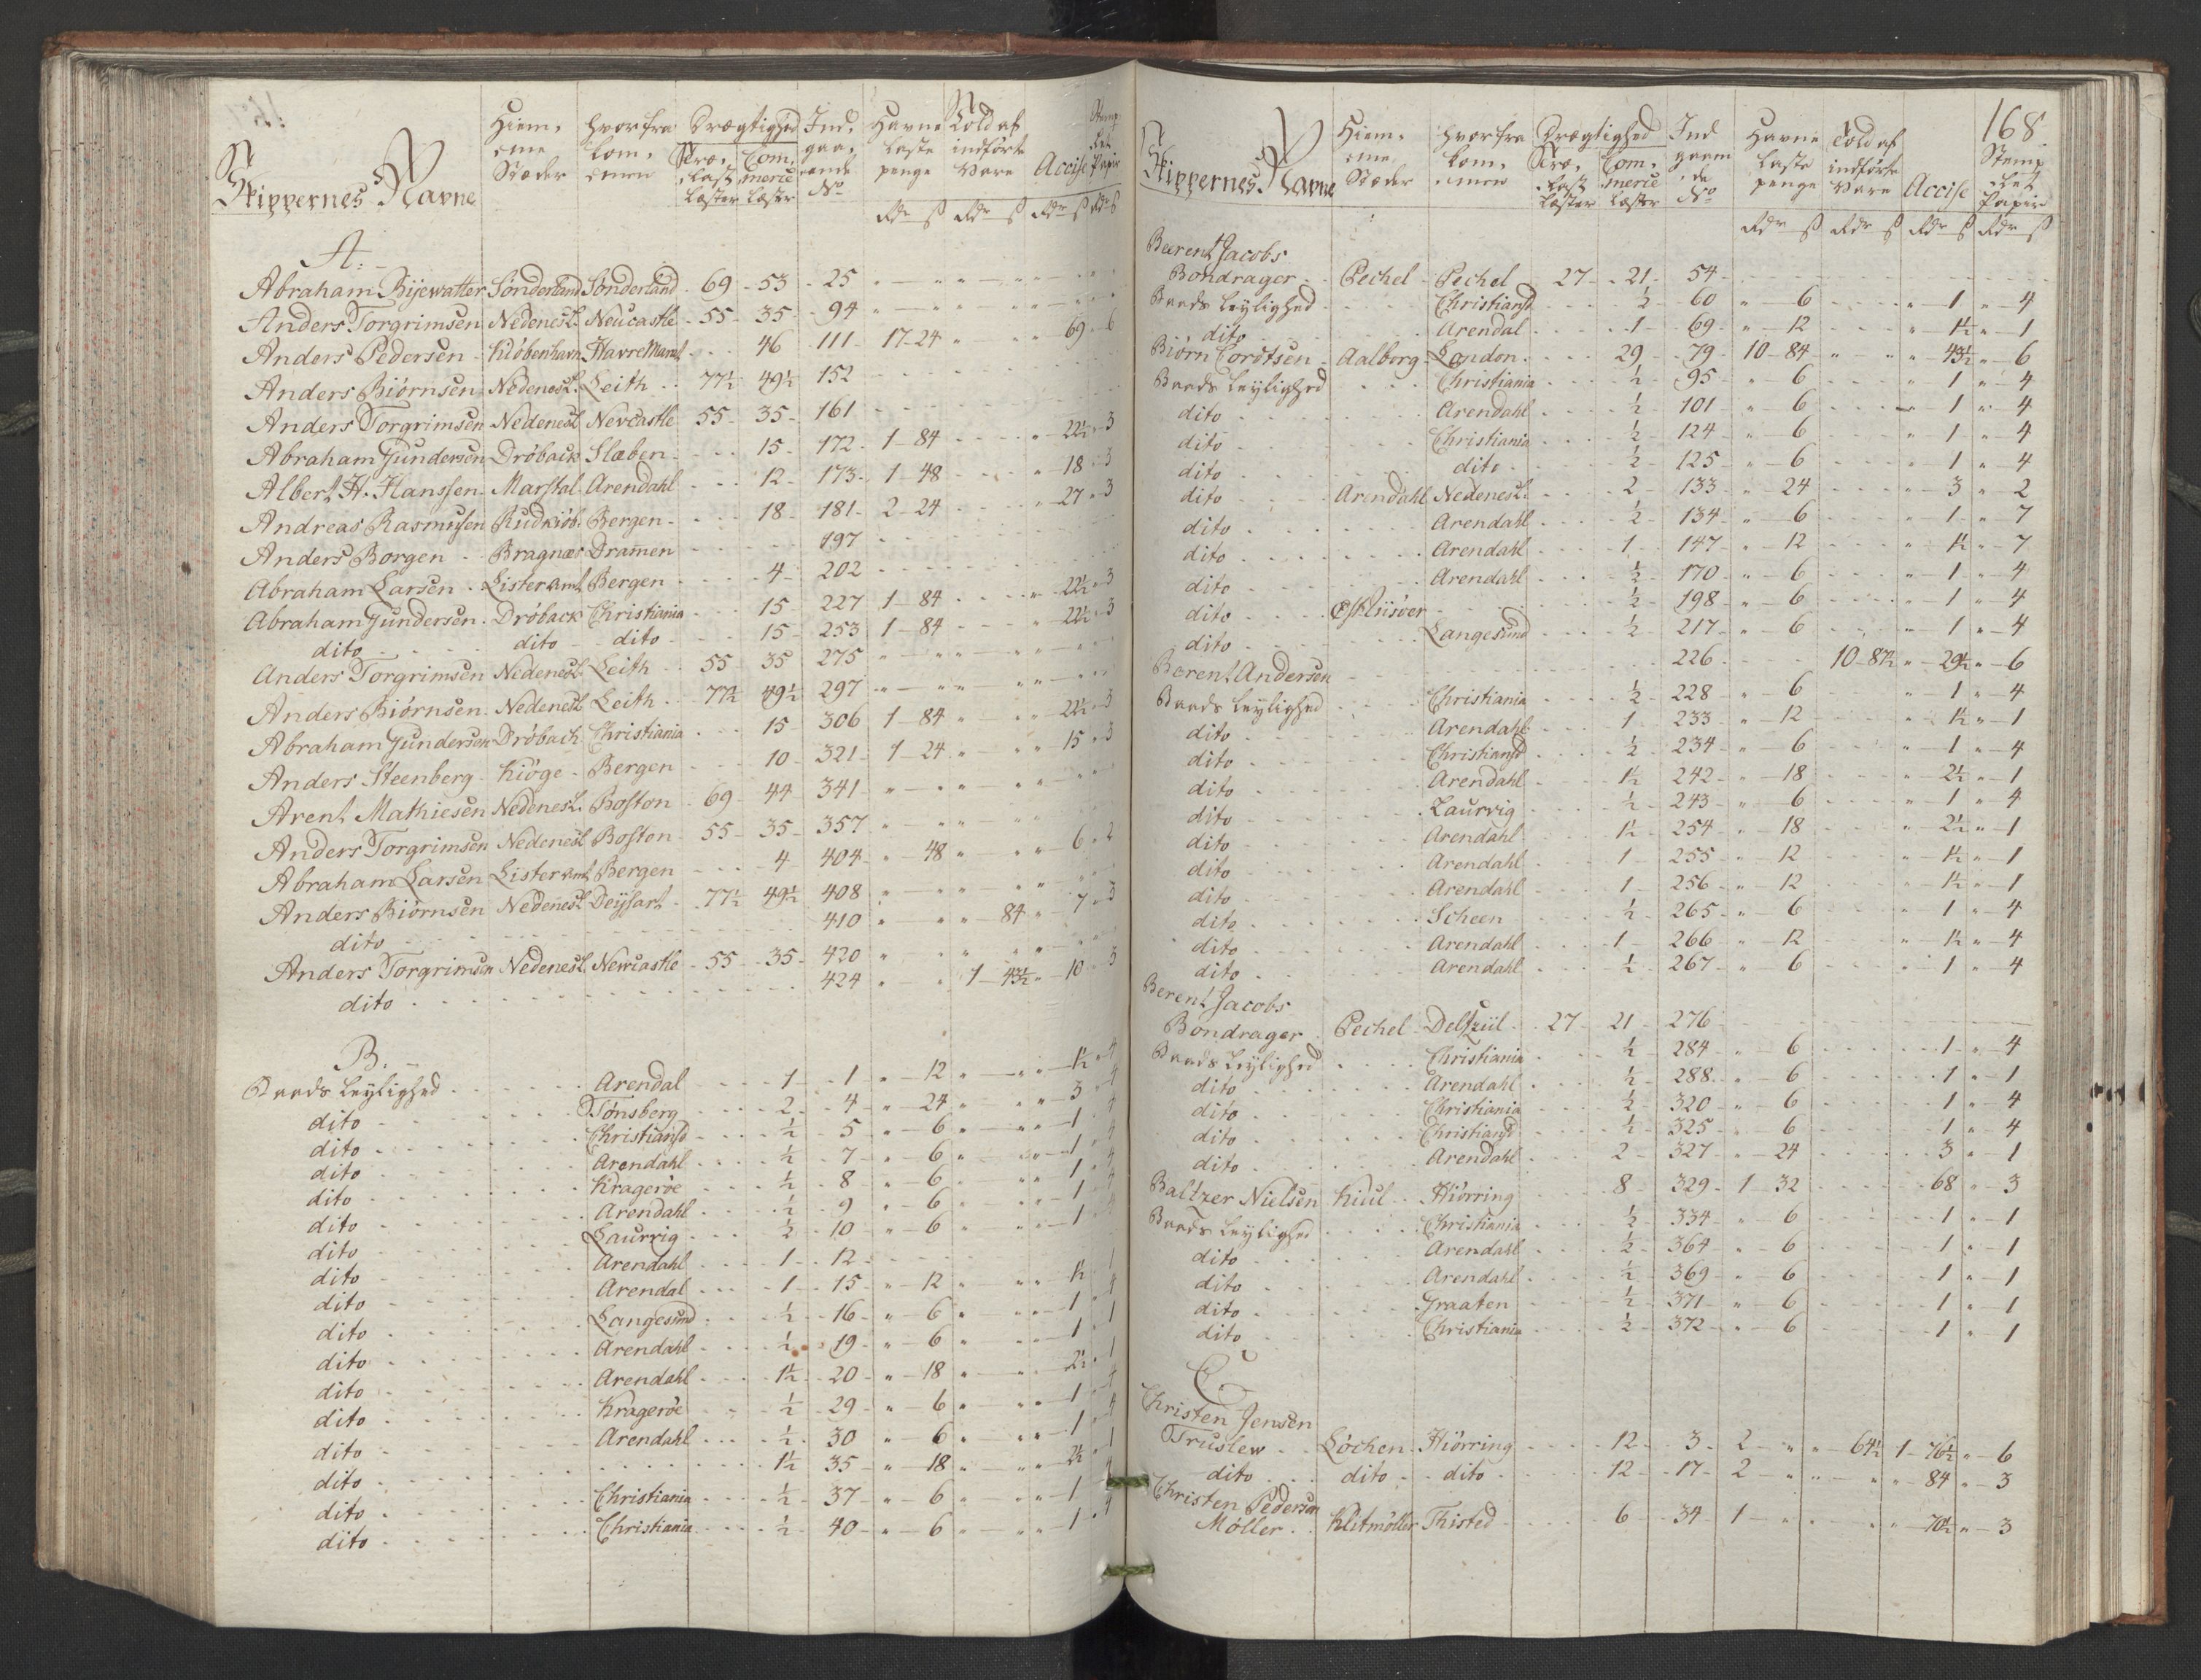 Skippernes Navne | Hiem, eme Stæder | hvorfra kom, emen | Drægtighed Træ, Last Læster | Com, merce Læster | Ind, gaa, ende No | Havne Laste penge | Told af indførte Vare | Accise | Stemp let Papir
Rdr ß Rdr ß Rdr ß Rdr ß
A.
Abraham Bijewatter Sønderland Sønderland 69 53 25
Anders Torgrimsen Nedenesl. Neucastle 55 35 94
Anders Pedersen Kiøbenhavn Havre Marat 46 111 17-24 " " 69 " 6
Anders Biørnsen Nedenesl. Leith 77½ 49½ 152
Anders Torgrimsen Nedenesl Nevcastle 55 35 161
Abraham Gundersen Drøback Slæben 15 172 1-84 " 22½ " 3
Albert H. Hanssen Marstal Arendahl 12 173 1-48 " 18 " 3
Andreas Rasmusen Rudkiøb. Bergen 18 181 2-24 " 27 " 3
Anders Borgen Bragnæs Dramen 197
Abraham Larsen Lister amt Bergen 4 202
Abraham Gundersen Drøback Christiania 15 227 1-84 " 22½ " 3
dito dito dito 15 253 1-84 " 22½ " 3
Anders Torgrimsen Nedenesl Leith 55 35 275
Anders Biørnsen Nedenesl Leith 77½ 49½ 297
Abraham Gundersen Drøbach Christiania 15 306 1-84 " " 22½ " 3
Anders Steenberg Kiøge Bergen 10 321 1-24 " " 15 " 3
Arent Mathiesen Nedenesl. Boston 69 44 341
Anders Torgrimsen Nedenesl Boston 55 35 357
Abraham Larsen Lister amt Bergen 4 404 " 48 " " 6 " 2
Anders Biørnsen Nedenesl Deysart 77½ 49½ 408
dito 410 " " " 84 " 7 " 3
Anders Torgrimsen Nedenesl. Newcastle 55 35 420
dito 424 " " 1 43½ " 10 " 3
B.
Baads Leylighed Arendal 1 1 " 12 " " 1½ " 4
dito Tønsberg 2 4 " 24 " " 3 " 4
dito Christiansd ½ 5 " 6 " " 1 " 4
dito Arendahl ½ 7 " 6 " " 1 " 4
dito Kragerøe ½ 8 " 6 " " 1 " 4
dito Arendahl ½ 9 " 6 " " 1 " 4
dito Laurvig ½ 10 " 6 " " 1 " 4
dito Arendahl 1 12
dito Arendal 1 15 " 12 " " 1½ " 1
dito Langesund ½ 16 " 6 " " 1 " 4
dito Arendahl ½ 19 " 6 " " 1 " 1
dito Arendahl 1½ 20 " 18 " " 2½ " 1
dito Kragerøe ½ 29 " 6 " " 1 " 4
dito Arendahl ½ 30 " 6 " " 1 " 4
dito 1½ 35 " 18 " " 2½ " 1
dito Christiania ½ 37 " 6 " " 1 " 4
dito Christiania ½ 40 " 6 " " 1 " 4
168
Skippernes Navne | Hiem, eme Stæder | hvorfra kom, emen | Drægtighed Træ, Last Læster | Com, merce Læster | Ind gaaen de No | Havne Laste penge | Told af indførte Vare | Accise | Stemp let Papir
Rdr ß Rdr ß Rdr ß Rdr ß
Beerent Jacobs
Bondrager Pechel Pechel 27 21 54
Baads Leylighed Christiansd ½ 60 " 6 " 1 " 4
dito Arendal 1 69 " 12 " 1½ " 1
Biørn Corotsen Aalborg London 29 79 10-84 " " " 43½ " 6
Baads Leylighed Christiania ½ 95 " 6 " 1 " 4
dito Arendahl ½ 101 " 6 " 1 " 4
dito Christiania ½ 124 " 6 " 1 " 4
dito dito ½ 125 " 6 " 1 " 4
dito Arendahl Nedenesl. 2 133 " 24 " 3 " 2
dito Arendahl ½ 134 " 6 " 1 " 7
dito Arendahl 1 147 " 12 " 1½ " 7
dito Arendahl ½ 170 " 6 " 1 " 4
dito ½ 198 " 6 " 1 " 4
dito Langesund ½ 217 " 6 " 1 " 4
Berent Andersen 226 10-87½ " 29½ " 6
Baads Leylighed Christiania ½ 228 " 6 " 1 " 4
dito Arendahl 1 233 " 12 " 1½ " 1
dito Christiansd ½ 234 " 6 " 1 " 4
dito Arendahl 1½ 242 " 18 " 2½ " 1
dito Laurvig ½ 243 " 6 " 1 " 4
dito Arendahl 1½ 254 " 18 " 2½ " 1
dito Arendahl 1 255 " 12 " 1½ " 1
dito Arendahl 1 256 " 12 " 1½ " 1
dito Scheen ½ 265 " 6 " 1 " 4
dito Arendahl 1 266 " 12 " 1½ " 4
dito Arendahl ½ 267 " 6 " 1 " 4
Berent Jacobs
Bondrager Pechel Delfziil 27 21 276
Baads Leylighed Christiania ½ 284 " 6 1 " 4
dito Arendahl ½ 288 " 6 1 " 1
dito Christiania ½ 320 " 6 1 " 4
dito Christiansd ½ 325 " 6 1 " 4
dito Arendahl 2 327 " 24 3 " 1
Baltzer Nielsen Kiul Hiørring 8 329 1 32 68 " 3
Baads Leylighed Christiania ½ 334 " 6 1 " 1
dito Arendahl ½ 364 " 6 1 " 1
dito Arendahl ½ 369 " 6 1 " 1
dito Graaten ½ 371 " 6 1 " 1
dito Christiania ½ 372 " 6 1 " 1
C
Christen Jensen
Truslew Løchen Hiørring 12 3 2 " " 64½ 1 76½ " 6
dito dito dito 12 17 2 " " " " 84 " 3
Christen Pedersen
Møller Klitmøller Thisted 6 34 1 " " " 70½ " 3